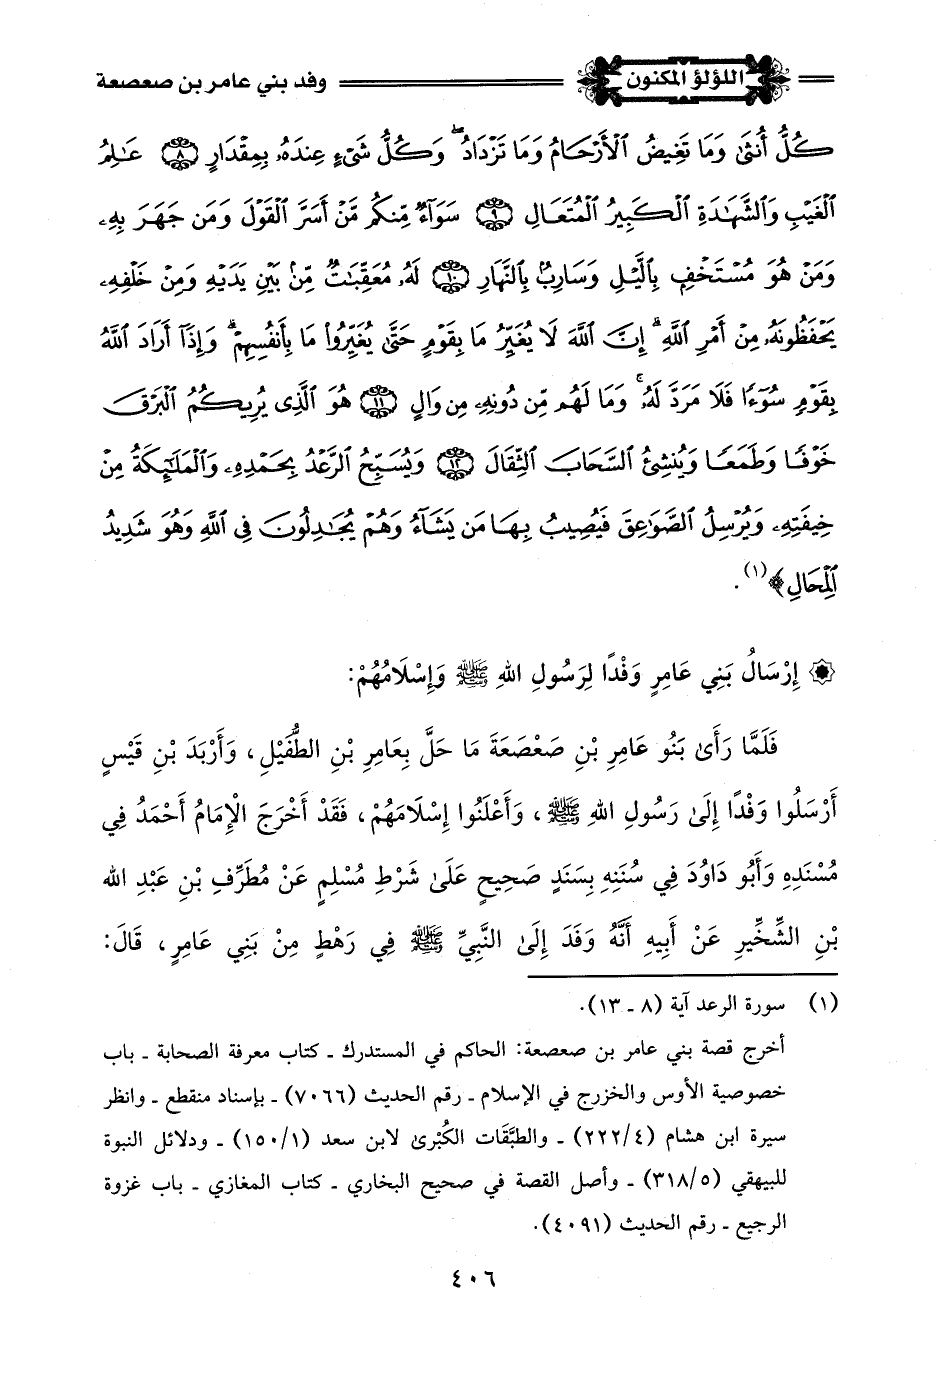 اللؤلؤ المكنون وفد بني عامر بن صعصعة
كُلُّ أُنثَىٰ وَمَا تَغِيضُ ٱلْأَرْحَامُ وَمَا تَزْدَادُ ۖ وَكُلُّ شَىْءٍ عِندَهُۥ بِمِقْدَارٍ ٨ عَـٰلِمُ
ٱلْغَيْبِ وَٱلشَّهَـٰدَةِ ٱلْكَبِيرُ ٱلْمُتَعَالِ ٩ سَوَآءٌ مِّنكُم مَّنْ أَسَرَّ ٱلْقَوْلَ وَمَن جَهَرَ بِهِۦ
وَمَنْ هُوَ مُسْتَخْفٍ بِٱلَّيْلِ وَسَارِبٌۢ بِٱلنَّهَارِ ١٠ لَهُۥ مُعَقِّبَـٰتٌ مِّنۢ بَيْنِ يَدَيْهِ وَمِنْ خَلْفِهِۦ
يَحْفَظُونَهُۥ مِنْ أَمْرِ ٱللَّهِ ۗ إِنَّ ٱللَّهَ لَا يُغَيِّرُ مَا بِقَوْمٍ حَتَّىٰ يُغَيِّرُوا۟ مَا بِأَنفُسِهِمْ ۗ وَإِذَآ أَرَادَ ٱللَّهُ
بِقَوْمٍ سُوٓءًا فَلَا مَرَدَّ لَهُۥ ۚ وَمَا لَهُم مِّن دُونِهِۦ مِن وَالٍ ١١ هُوَ ٱلَّذِى يُرِيكُمُ ٱلْبَرْقَ
خَوْفًا وَطَمَعًا وَيُنشِئُ ٱلسَّحَابَ ٱلثِّقَالَ ١٢ وَيُسَبِّحُ ٱلرَّعْدُ بِحَمْدِهِۦ وَٱلْمَلَـٰٓئِكَةُ مِنْ
خِيفَتِهِۦ وَيُرْسِلُ ٱلصَّوَٰعِقَ فَيُصِيبُ بِهَا مَن يَشَآءُ وَهُمْ يُجَـٰدِلُونَ فِى ٱللَّهِ وَهُوَ شَدِيدُ
ٱلْمِحَالِ﴾(١).
إِرْسَالُ بَنِي عَامِرٍ وَفْدًا لِرَسُولِ اللهِ ﷺ وَإِسْلَامُهُمْ:
فَلَمَّا رَأَىٰ بَنُو عَامِرِ بْنِ صَعْصَعَةَ مَا حَلَّ بِعَامِرِ بْنِ الطُّفَيْلِ، وَأَرْبَدَ بْنِ قَيْسٍ
أَرْسَلُوا وَفْدًا إِلَىٰ رَسُولِ اللهِ ﷺ، وَأَعْلَنُوا إِسْلَامَهُمْ، فَقَدْ أَخْرَجَ الْإِمَامُ أَحْمَدُ فِي
مُسْنَدِهِ وَأَبُو دَاوُدَ فِي سُنَنِهِ بِسَنَدٍ صَحِيحٍ عَلَىٰ شَرْطِ مُسْلِمٍ عَنْ مُطَرِّفِ بْنِ عَبْدِ الله
بْنِ الشِّخِّيرِ عَنْ أَبِيهِ أَنَّهُ وَفَدَ إِلَىٰ النَّبِيِّ ﷺ فِي رَهْطٍ مِنْ بَنِي عَامِرٍ، قَالَ:
(١) سورة الرعد آية (٨ ـ ١٣).
أخرج قصة بني عامر بن صعصعة: الحاكم في المستدرك ـ كتاب معرفة الصحابة ـ باب
خصوصية الأوس والخزرج في الإسلام ـ رقم الحديث (٧٠٦٦) ـ بإسناد منقطع ـ وانظر
سيرة ابن هشام (٢٢٢/٤) ـ والطبَّقات الكُبْرىٰ لابن سعد (١٥٠/١) ـ ودلائل النبوة
للبيهقي (٣١٨/٥) ـ وأصل القصة في صحيح البخاري ـ كتاب المغازي ـ باب غزوة
الرجيع ـ رقم الحديث (٤٠٩١).
٤٠٦